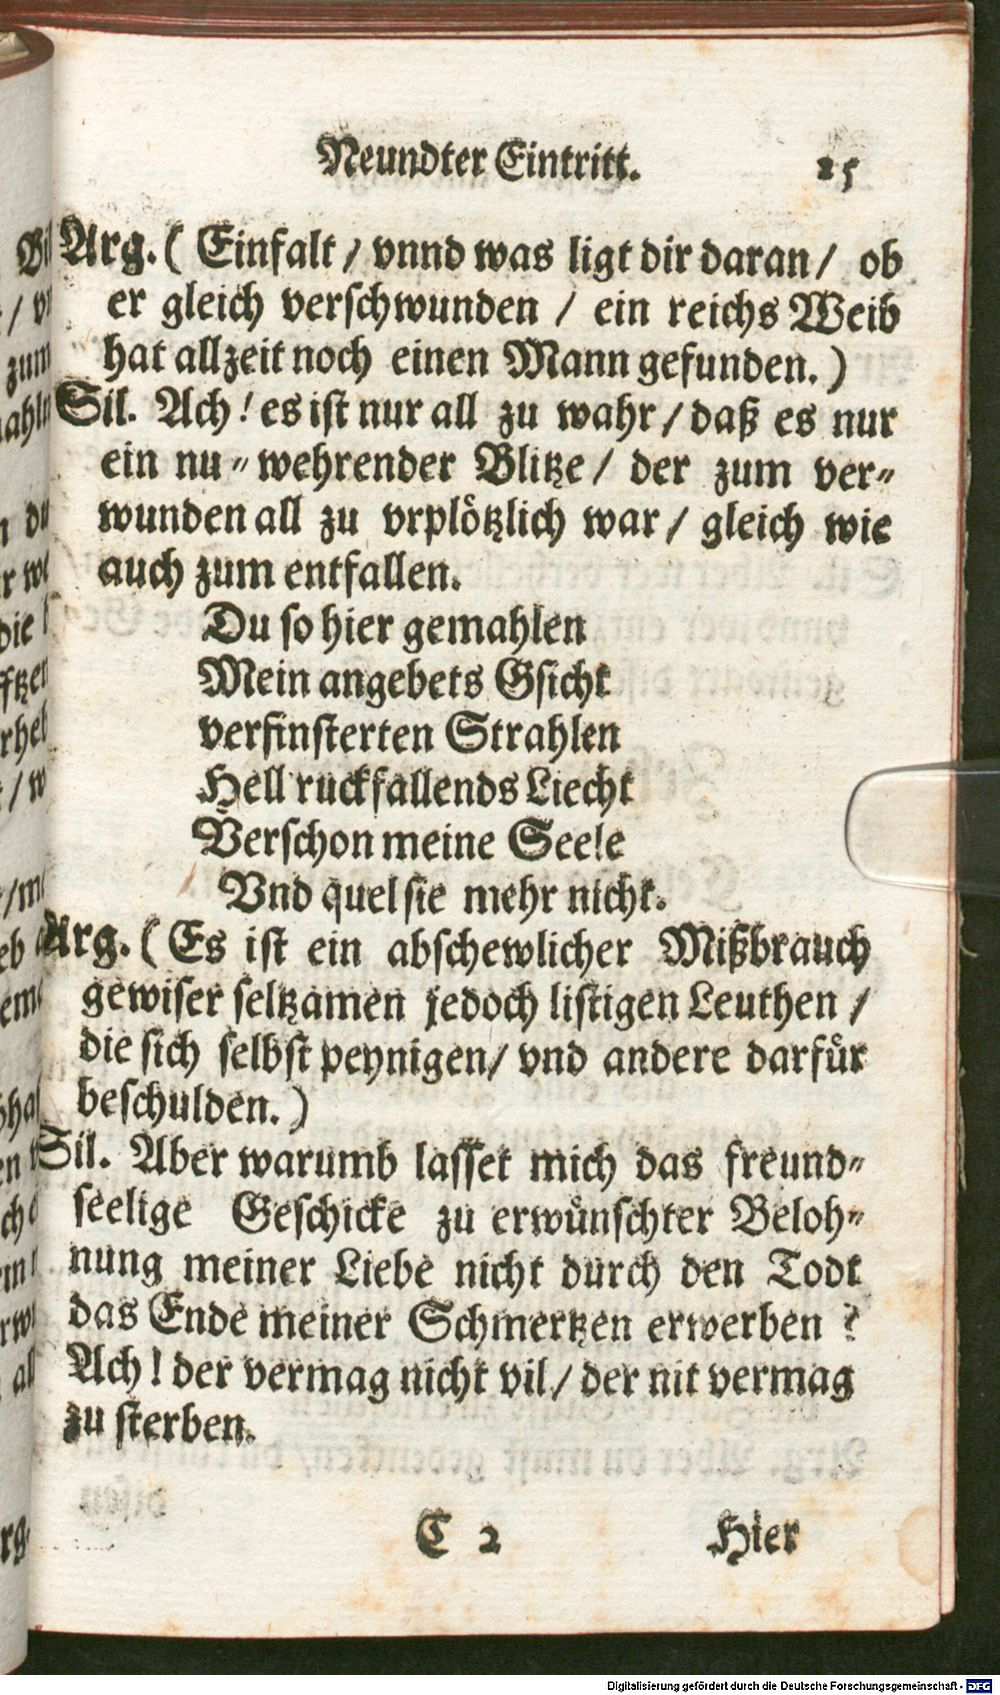 Neundter Eintritt. 25
Arg. ( Einfalt / vnnd was ligt dir daran / ob
er gleich verschwunden / ein reichs Weib
hat allzeit noch einen Mann gefunden. )
Sil. Ach ! es ist nur all zu wahr / daß es nur
ein nu-wehrender Blitze / der zum ver-
wunden all zu vrplötzlich war / gleich wie
auch zum entfallen.
Du so hier gemahlen
Mein angebets Gsicht
verfinsterten Strahlen
Hell ruckfallends Liecht
Verschon meine Seele
Vnd quel sie mehr nicht.
Arg. ( Es ist ein abschewlicher Mißbrauch
gewiser seltzamen jedoch listigen Leuthen /
die sich selbst peynigen / vnd andere darfür
beschulden. )
Sil. Aber warumb lasset mich das freund-
seelige Geschicke zu erwünschter Beloh-
nung meiner Liebe nicht durch den Todt
das Ende meiner Schmertzen erwerben ?
Ach ! der vermag nicht vil / der nit vermag
zu sterben.
C 2 Hier
Digitalisierung gefördert durch die Deutsche Forschungsgemeinschaft - DFG